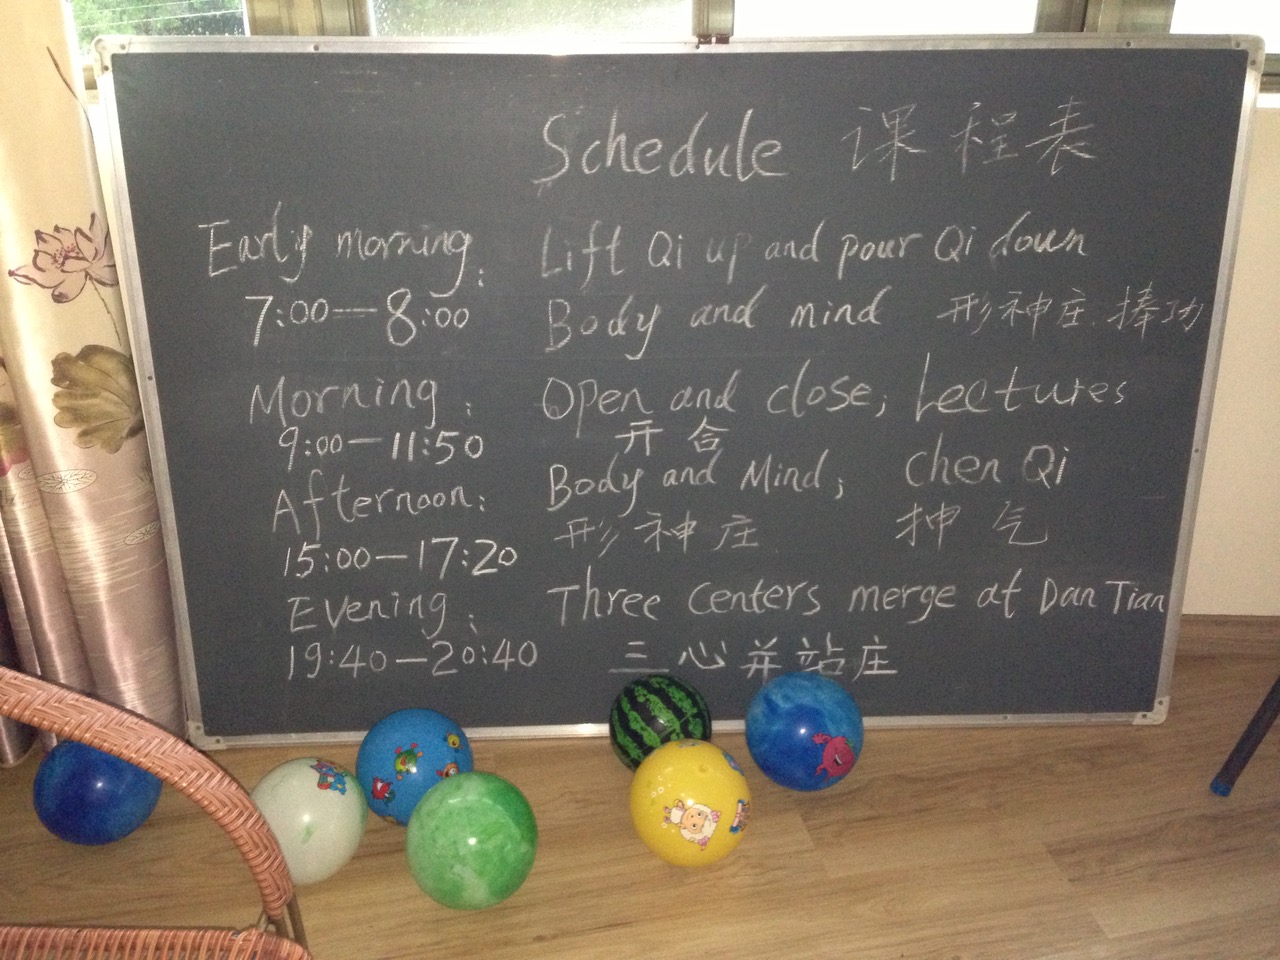 Schedule 课程表
Early morning: Lift Qi up and pour Qi down
7:00—8:00 Body and mind 形神庄、捧功
Morning: Open and close; Lectures
9:00—11:50 开合
Afternoon: Body and Mind; Chen Qi
15:00—17:20 形神庄 抻气
Evening: Three Centers merge at Dan Tian
19:40—20:40 三心并站庄